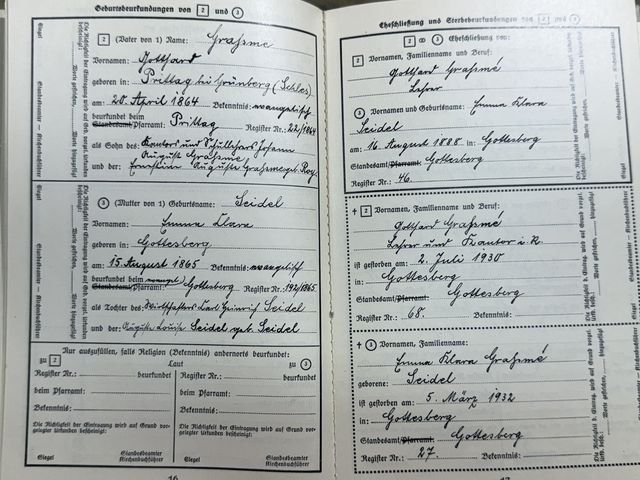 Geburtsbeurkundungen von 2 und 3
2 (Vater von 1) Name: Graßme
Vornamen: Gotthard
geboren in:
Prittag bei Grünberg (Schles)
am: 20. April 1864 Bekenntnis: evangelisch
beurkundet beim
Standesamt/Pfarramt: Prittag Register Nr.: 22/1864
als Sohn des: Kantors und Schullehrers Johann
Auguste Graßme
und der: Ernestine Auguste Graßme geb.
Siegel
Die Richtigkeit der Eintragungen wird auf Grund vorgelegter Urkunden bescheinigt:
Worte gestrichen, Worte hinzugefügt
Standesbeamter — Kirchenbuchführer
3 (Mutter von 1) Geburtsname: Seidel
Vornamen:
Emma Klara
geboren in:
Gottesberg
am: 15. August 1865 Bekenntnis: evangelisch
beurkundet beim
Standesamt/Pfarramt: Gottesberg Register Nr.: 192/1865
als Tochter des: Wirtschafters Karl Heinrich Seidel
und der: Auguste Louise Seidel geb. Seidel
Siegel
Die Richtigkeit der Eintragungen wird auf Grund vorgelegter Urkunden bescheinigt:
Worte gestrichen, Worte hinzugefügt
Standesbeamter — Kirchenbuchführer
Nur auszufüllen, falls Religion (Bekenntnis) anderorts beurkundet:
zu 2 Laut zu 3
Register Nr.: beurkundet
beim Pfarramt:
Bekenntnis:
Die Richtigkeit der Eintragung wird auf Grund vorgelegter Urkunden bescheinigt:
Siegel Standesbeamter
Kirchenbuchführer
Register Nr.: beurkundet
beim Pfarramt:
Bekenntnis:
Die Richtigkeit der Eintragung wird auf Grund vorgelegter Urkunden bescheinigt:
Siegel Standesbeamter
Kirchenbuchführer
16
Eheschließung und Sterbebeurkundungen von 2 und 3
2 ∞ 3 Eheschließung von:
2 Vornamen, Familienname und Beruf:
Gotthard Graßmé
Lehrer
3 Vornamen und Geburtsname: Emma Klara
Seidel
am: 16. August 1888 in: Gottesberg
Standesamt/Pfarramt: Gottesberg
Register Nr.: 46.
† 2 Vornamen, Familienname und Beruf:
Gotthard Graßmé
Lehrer und Kantor i. R.
ist gestorben am: 2. Juli 1930
in: Gottesberg
Standesamt/Pfarramt: Gottesberg
Register Nr.: 68. Bekenntnis:
† 3 Vornamen, Familienname:
Emma Klara Graßmé
geborene: Seidel
ist gestorben am: 5. März 1932
in: Gottesberg
Standesamt/Pfarramt: Gottesberg
Register Nr.: 27. Bekenntnis:
17